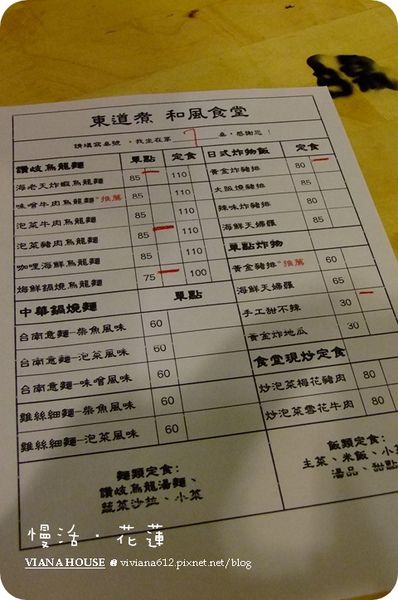 東道煮 和風食堂
請填寫桌號，我坐在第 7 桌，感謝您！
讚岐烏龍麵 單點 定食
海老天炸蝦烏龍麵 85 110
味噌牛肉烏龍麵 "推薦 85 110
泡菜牛肉烏龍麵 85 110
泡菜豬肉烏龍麵 85 110
咖哩海鮮烏龍麵 85 110
海鮮鍋燒烏龍麵 75 100
中華鍋燒麵 單點
台南意麵-柴魚風味 60
台南意麵-泡菜風味 60
台南意麵-味噌風味 60
雞絲細麵-柴魚風味 60
雞絲細麵-泡菜風味 60
麵類定食：
讚岐烏龍湯麵、
蔬菜沙拉、小菜
日式炸物飯 定食
黃金炸豬排 80
大阪燒豬排 85
辣味炸豬排 80
海鮮天婦羅 85
單點炸物
黃金豬排 "推薦 60
海鮮天婦羅 65
手工甜不辣 30
黃金炸地瓜 30
食堂現炒定食
炒泡菜梅花豬肉 80
炒泡菜雪花牛肉 80
飯類定食：
主菜、米飯、小
湯品、甜點
慢活．花蓮
VIANA HOUSE @ viviana612.pixnet.net/blog